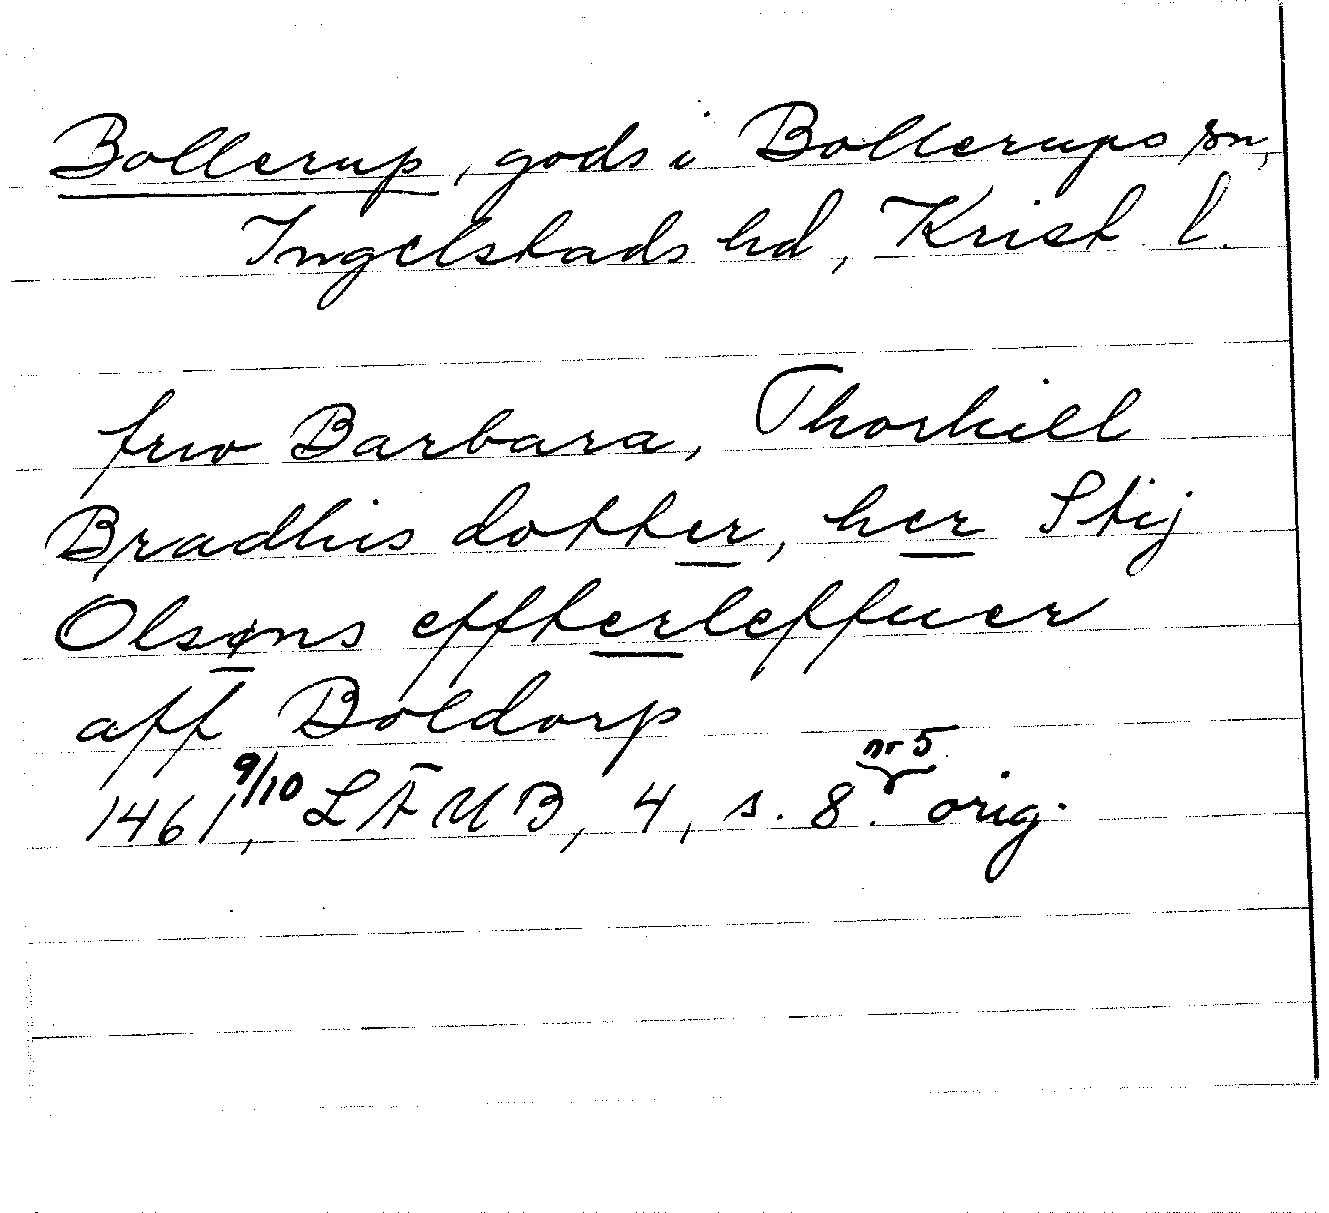 Bollerup, gods i Bollerups sn,
Ingelstads hd, Krist l.
frw Barbara, Thorkill
Bradhis dotter, her Stij
Olsøns effterleffuer
aff Boldorp
1461 9/10, LÄUB, 4, s. 8. nr 5 orig.